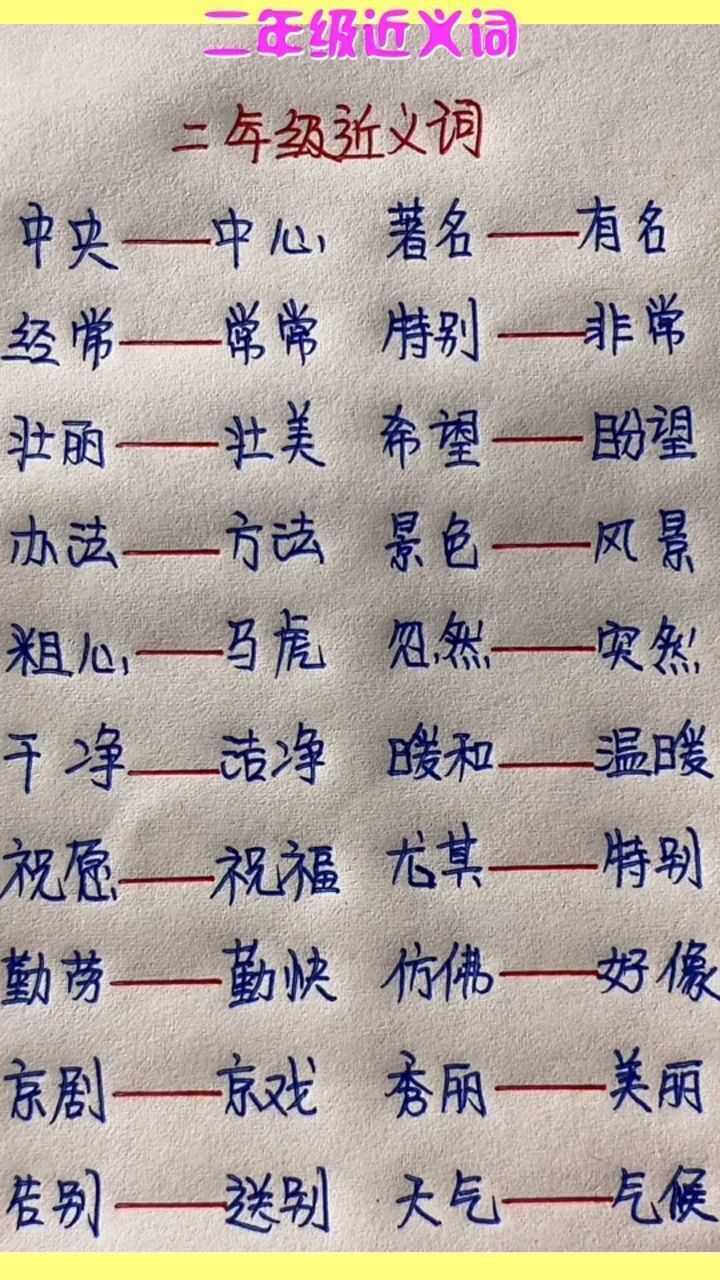 二年级近义词
二年级近义词
中央——中心 著名——有名
经常——常常 特别——非常
壮丽——壮美 希望——盼望
办法——方法 景色——风景
粗心——马虎 忽然——突然
干净——洁净 暖和——温暖
祝愿——祝福 尤其——特别
勤劳——勤快 仿佛——好像
京剧——京戏 秀丽——美丽
告别——送别 天气——气候